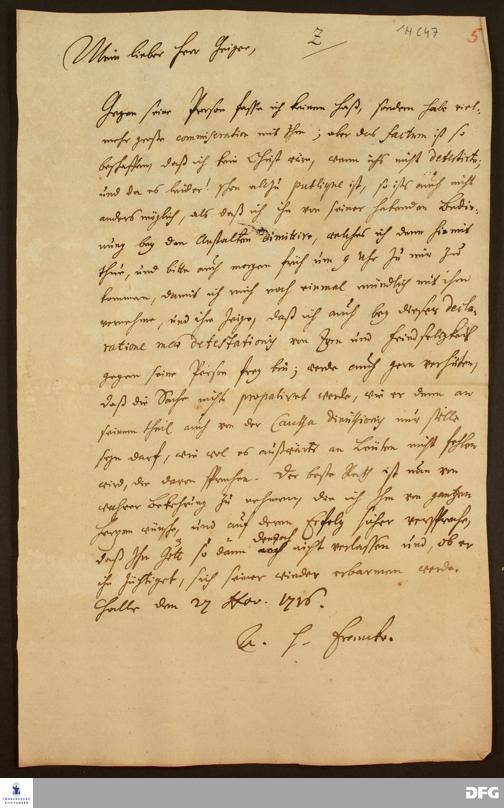 14 C 47
5
Z
Mein lieber Herr Geiger,
Gegen seine Person fasse ich keinen Haß, sondern habe viel-
mehr große commiseration mit Ihm; aber das factum ist so
beschaffen, daß ich kein Christ wäre, wenn ichs nicht detestirte;
und da es leider! schon allzu publique ist, so ists auch nicht
anders möglich, als daß ich ihn von seiner habenden Bedie-
nung bey den Anstalten dimittire, welches ich denn hiemit
thue, und bitte auch morgen früh um 9 Uhr zu mir zu
kommen, damit ich mich noch einmal mündlich mit ihm
vernehme, und ihm zeige, daß ich auch bey dieser decla-
ratione meae detestationis von Zorn und Feindseligkeit
gegen seine Person frey bin; werde auch gern verhüten,
daß die Sache nicht propaliret werde, wie er denn an
seinem theil auch von der Caussa dimissionis nur stille
seyn darf, wie wol es außwärts an Leuten nicht fehlen
wird, die davon sprechen. Der beste Rath ist nun von
wahrer Bekehrung zu nehmen, die ich Ihm von gantzem
Hertzen wünsche, und auf deren Erfolg sicher verspreche,
daß Ihn Gott so dann dennoch nicht verlassen und, ob er
ihn züchtiget, sich seiner wieder erbarmen werde.
Halle den 27 Nov. 1716.
A. H. Francke.
FRANCKESCHE
STIFTUNGEN
DFG